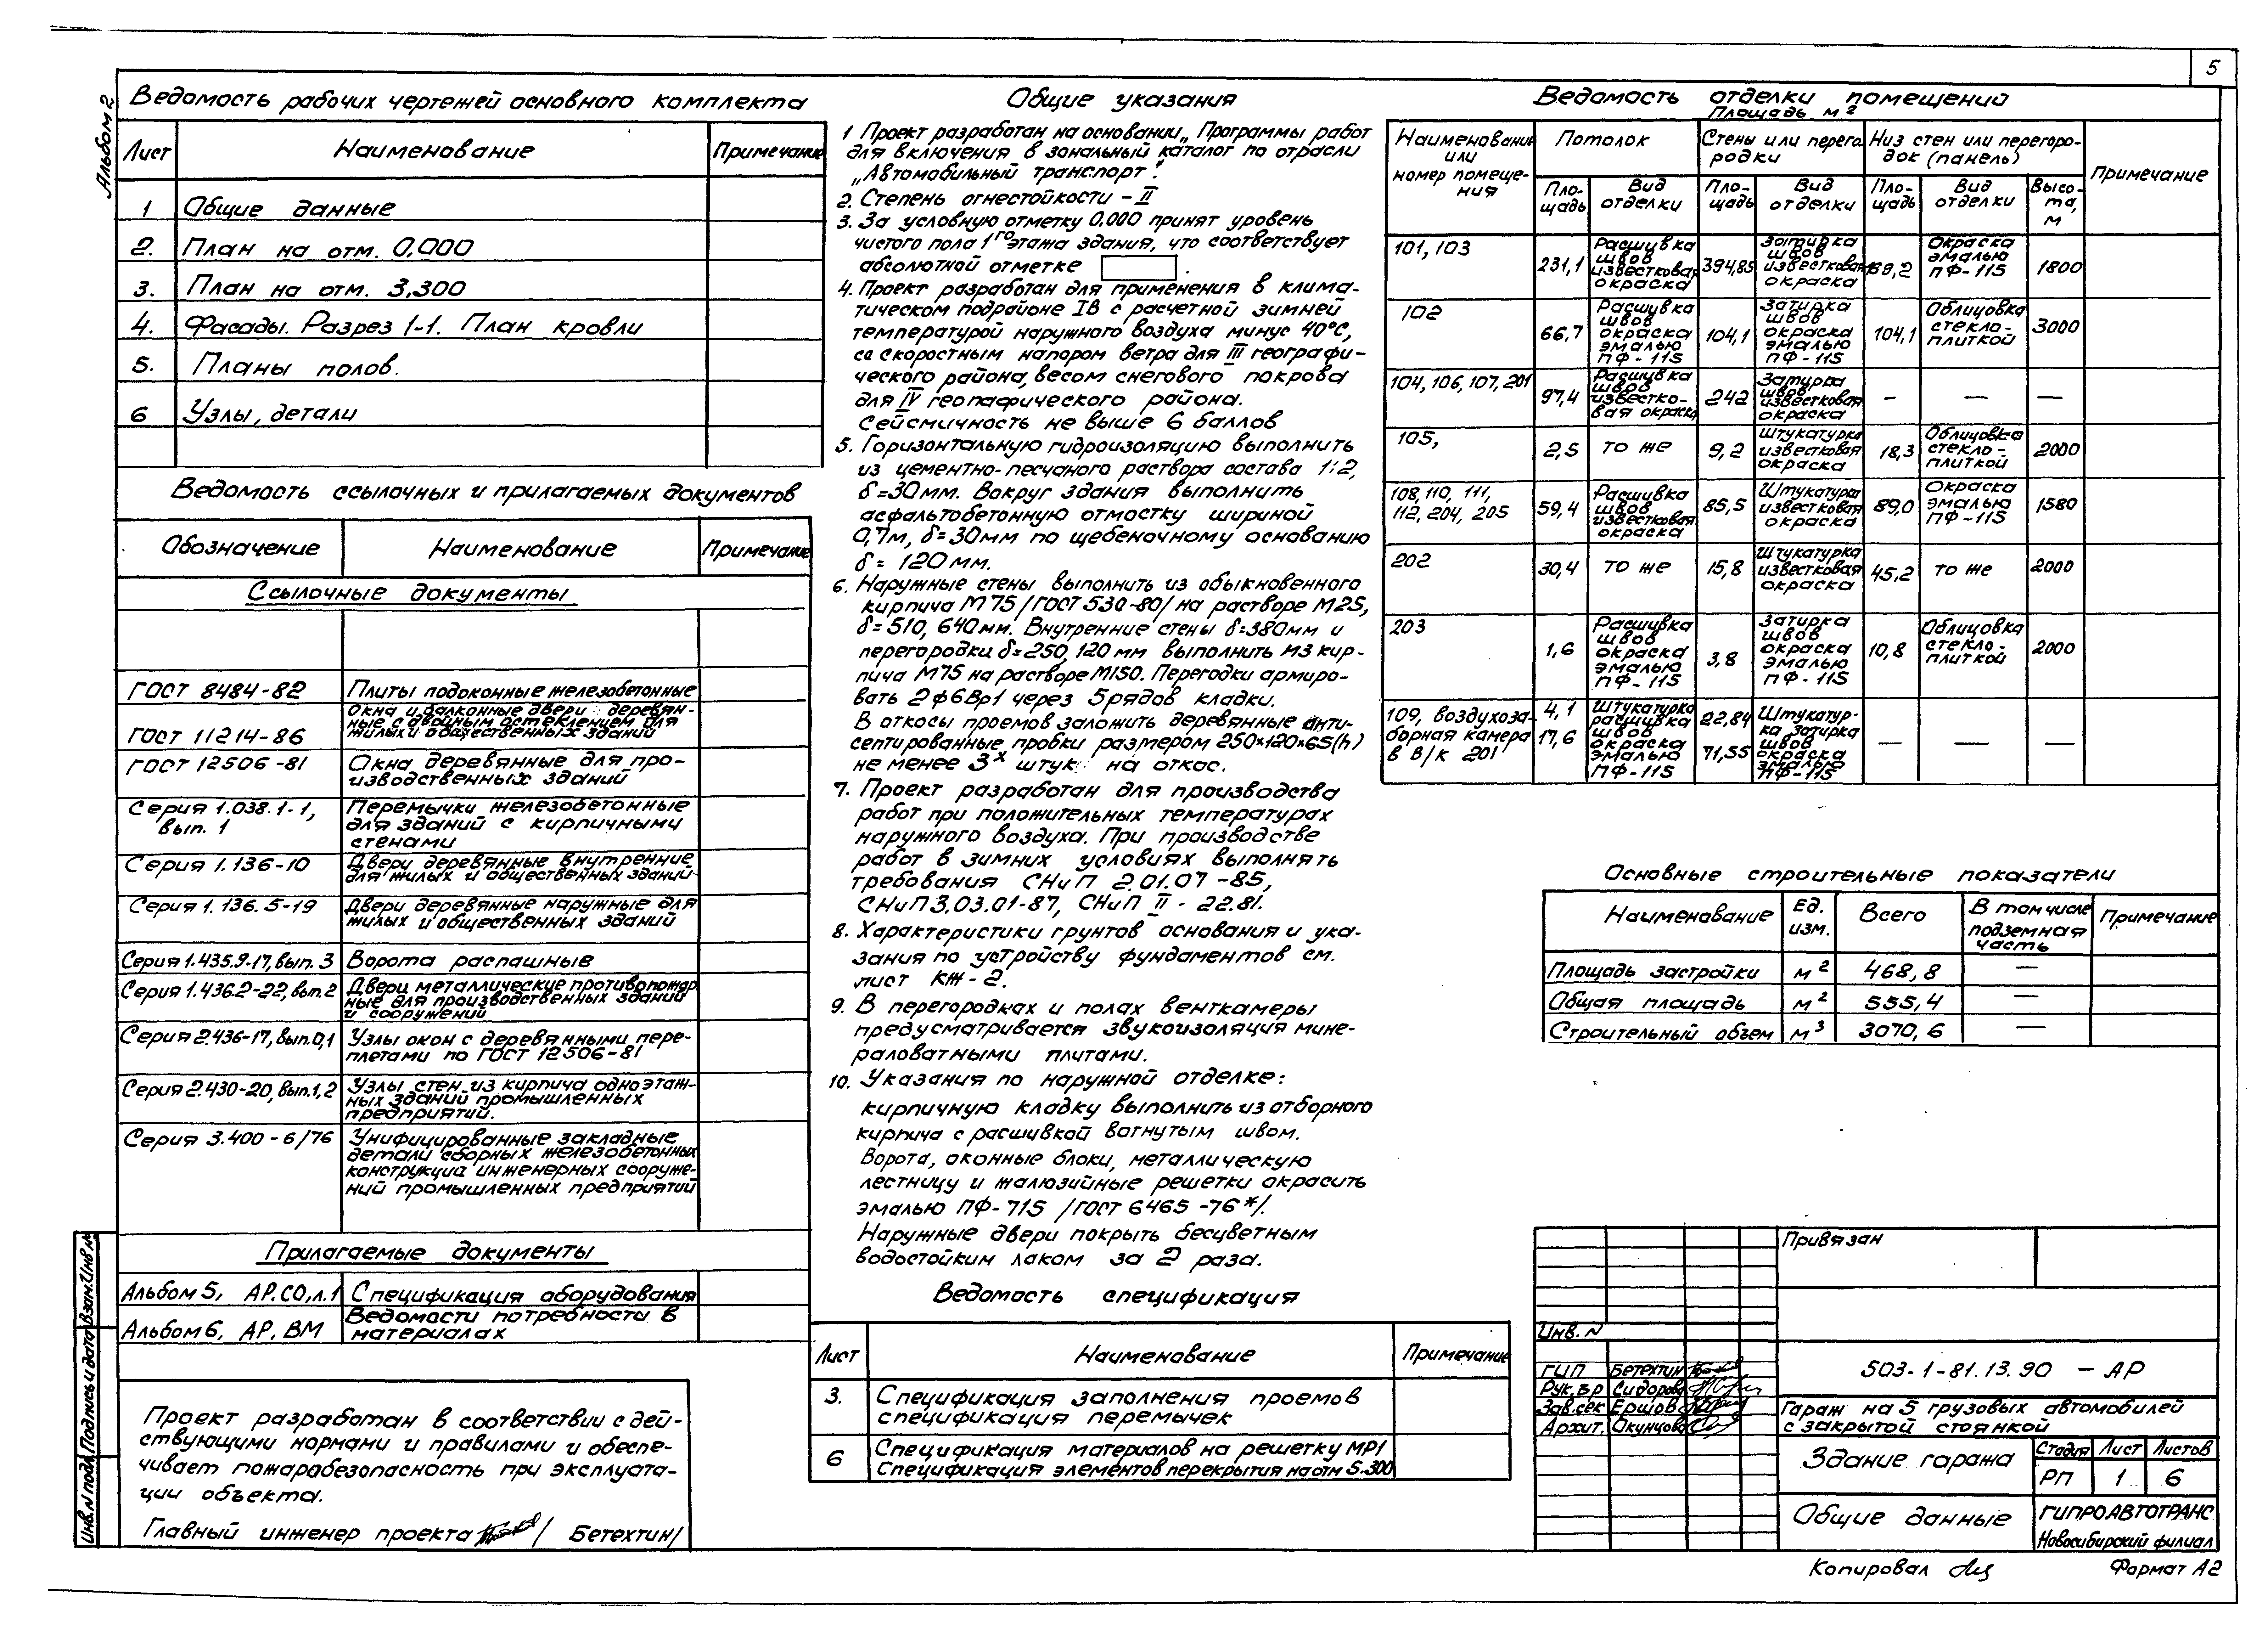 5
Альбом 2
Ведомость рабочих чертежей основного комплекта
Лист Наименование Примечание
1 Общие данные
2. План на отм. 0,000
3. План на отм. 3,300
4. Фасады. Разрез 1-1. План кровли
5. Планы полов.
6 Узлы, детали
Ведомость ссылочных и прилагаемых документов
Обозначение Наименование Примечание
Ссылочные документы
ГОСТ 8484-82 Плиты подоконные железобетонные
ГОСТ 11214-86 Окна и балконные двери деревян-
ные с двойным остеклением для
жилых и общественных зданий
ГОСТ 12506-81 Окна деревянные для про-
изводственных зданий
Серия 1.038.1-1, Перемычки железобетонные
вып. 1 для зданий с кирпичными
стенами
Серия 1.136-10 Двери деревянные внутренние
для жилых и общественных зданий
Серия 1.136.5-19 Двери деревянные наружные для
жилых и общественных зданий
Серия 1.435.9-17, вып. 3 Ворота распашные
Серия 1.436.2-22, вып. 2 Двери металлические противопожар
ные для производственных зданий
и сооружений
Серия 2.436-17, вып. 0,1 Узлы окон с деревянными пере-
плетами по ГОСТ 12506-81
Серия 2.430-20, вып. 1,2 Узлы стен из кирпича одноэтаж-
ных зданий промышленных
предприятий.
Серия 3.400-6/76 Унифицированные закладные
детали сборных железобетонных
конструкций инженерных сооруже-
ний промышленных предприятий
Прилагаемые документы
Альбом 5, АР.СО, л.1 Спецификация оборудования
Альбом 6, АР. ВМ Ведомости потребности в
материалах
Проект разработан в соответствии с дей-
ствующими нормами и правилами и обеспе-
чивает пожаробезопасность при эксплуата-
ции объекта.
Главный инженер проекта / Бетехтин/
Общие указания
1 Проект разработан на основании „Программы работ
для включения в зональный каталог по отрасли
„Автомобильный транспорт".
2. Степень огнестойкости – II
3. За условную отметку 0.000 принят уровень
чистого пола 1го этажа здания, что соответствует
абсолютной отметке .
4. Проект разработан для применения в клима-
тическом подрайоне IВ с расчетной зимней
температурой наружного воздуха минус 40°С,
со скоростным напором ветра для III географи-
ческого района, весом снегового покрова
для IV геогафического района.
Сейсмичность не выше 6 баллов
5. Горизонтальную гидроизоляцию выполнить
из цементно-песчаного раствора состава 1:2,
δ=30мм. Вокруг здания выполнить
асфальтобетонную отмостку шириной
0,7м, δ=30мм по щебеночному основанию
δ= 120мм.
6. Наружные стены выполнить из обыкновенного
кирпича М75/ГОСТ 530-80/ на растворе М25,
δ=510, 640мм. Внутренние стены δ=380мм и
перегородки δ=250, 120мм выполнить из кир-
пича М75 на растворе М150. Перегодки армиро-
вать 2ф6Вр1 через 5 рядов кладки.
В откосы проемов заложить деревянные анти-
септированные пробки размером 250×120×65(h)
не менее 3х штук на откос.
7. Проект разработан для производства
работ при положительных температурах
наружного воздуха. При производстве
работ в зимних условиях выполнять
требования СНиП 2.01.07-85,
СНиП 3.03.01-87, СНиП II - 22.81.
8. Характеристики грунтов основания и ука-
зания по устройству фундаментов см.
лист КЖ-2.
9. В перегородках и полах венткамеры
предусматривается звукоизоляция мине-
раловатными плитами.
10. Указания по наружной отделке:
кирпичную кладку выполнить из отборного
кирпича с расшивкой вогнутым швом.
Ворота, оконные блоки, металлическую
лестницу и жалюзийные решетки окрасить
эмалью ПФ-715 /ГОСТ 6465-76*/.
Наружные двери покрыть бесцветным
водостойким лаком за 2 раза.
Ведомость спецификация
Лист Наименование Примечание
3. Спецификация заполнения проемов
спецификация перемычек
6 Спецификация материалов на решетку МР1
Спецификация элементов перекрытия на отм 5.300
Ведомость отделки помещений
Площадь м²
Наименование или номер помеще-ния Потолок Стены или перего родки Низ стен или перегоро-док (панель) Примечание
Пло-щадь Вид отделки Пло-щадь Вид отделки Пло-щадь Вид отделки Высо-та, м
101, 103 231,1 Расшивка швов известковая окраска 394,85 Затирка швов известковая окраска 139,2 Окраска эмалью ПФ-115 1800
102 66,7 Расшивка швов окраска эмалью ПФ-115 104,1 Затирка швов окраска эмалью ПФ-115 104,1 Облицовка стекло-плиткой 3000
104, 106, 107, 201 97,4 Расшивка швов известко-вая окраска 242 Затирка швов известковая окраска – – –
105, 2,5 то же 9,2 Штукатурка известковая окраска 18,3 Облицовка стекло-плиткой 2000
108, 110, 111, 112, 204, 205 59,4 Расшивка швов известковая окраска 85,5 Штукатурка известковая окраска 89,0 Окраска эмалью ПФ-115 1580
202 30,4 то же 15,8 Штукатурка известковая окраска 45,2 то же 2000
203 1,6 Расшивка швов окраска эмалью ПФ-115 3,8 Затирка швов окраска эмалью ПФ-115 10,8 Облицовка стекло-плиткой 2000
109, воздухоза-борная камера в В/К 201 4,1 17,6 Штукатурка расшивка швов окраска эмалью ПФ-115 22,84 71,55 Штукатур-ка затирка швов окраска эмалью ПФ-115 – – –
Основные строительные показатели
Наименование Ед. изм. Всего В том числе подземная часть Примечание
Площадь застройки м² 468,8 –
Общая площадь м² 555,4 –
Строительный объем м³ 3070,6 –
Привязан
Инв. N
ГИП Бетехтин
Рук. бр Сидорова
Зав.сек Ершов
Архит. Окунцова
503-1-81.13.90 – АР
Гараж на 5 грузовых автомобилей
с закрытой стоянкой
Здание гаража
Стадия Лист Листов
РП 1 6
Общие данные
ГИПРОАВТОТРАНС
Новосибирский филиал
Копировал
Формат А2
Инв. N подл Подпись и дата Взам. Инв №